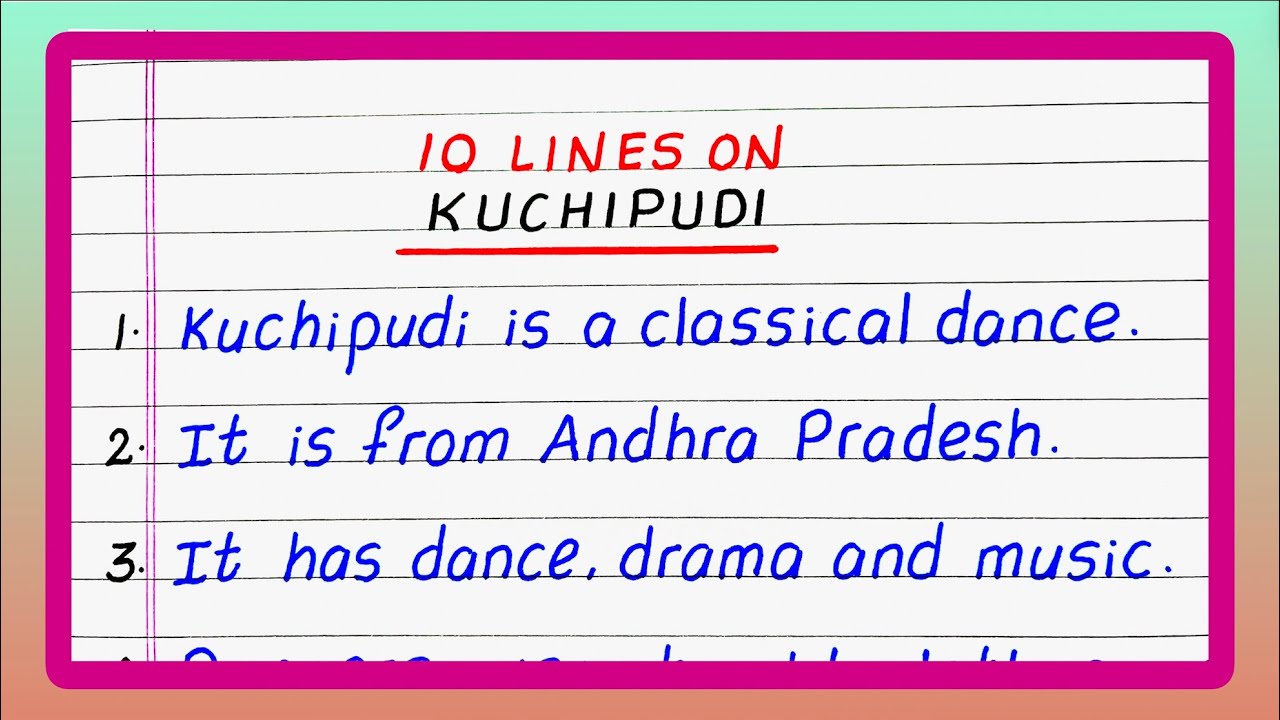 10 LINES ON
KUCHIPUDI
1. Kuchipudi is a classical dance.
2. It is from Andhra Pradesh.
3. It has dance, drama and music.